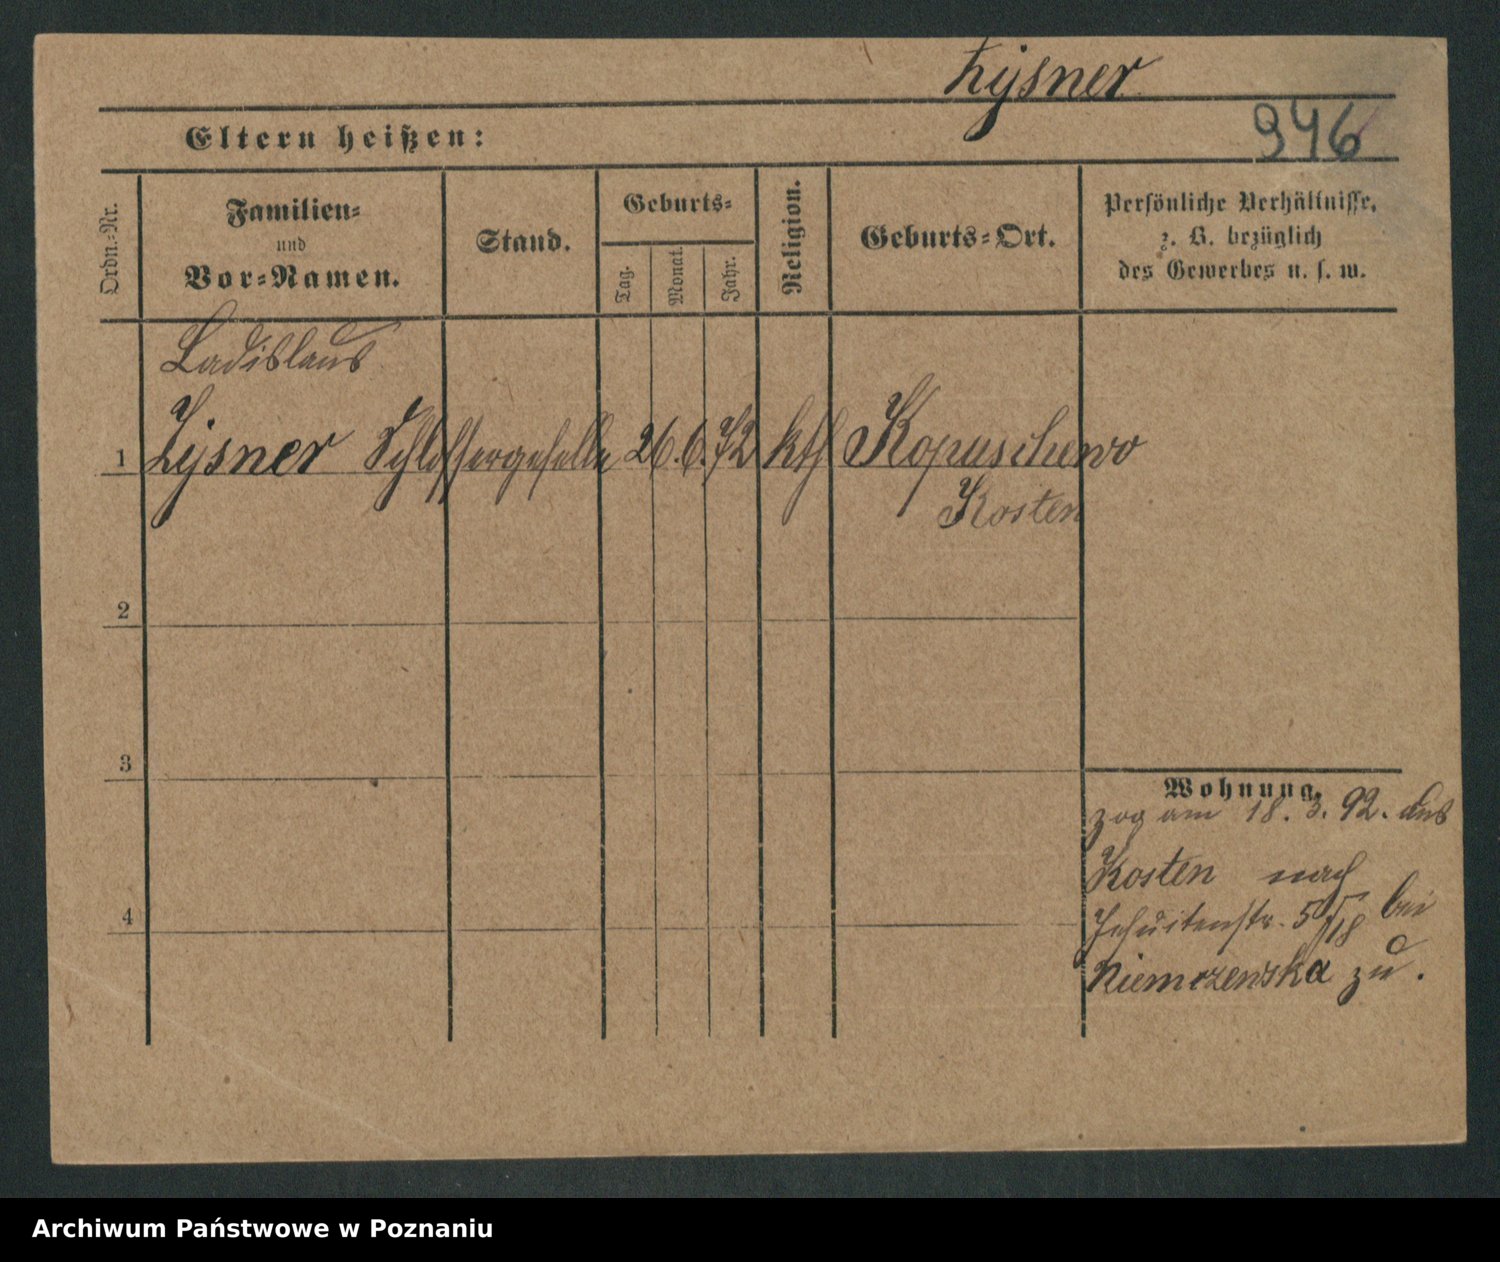 Lijsner
946
Eltern heißen:
Ordn.-Nr.
Familien-
und
Vor-Namen.
Stand.
Geburts-
Tag.
Monat.
Jahr.
Religion.
Geburts-Ort.
Persönliche Verhältnisse,
z. B. bezüglich
des Gewerbes u. s. w.
Ladislaus
1 Lijsner Schlossergeselle 26. 6. 72 kth Kopaschewo
Kosten
2
3
4
Wohnung.
zog am 18. 3. 92. aus
Kosten nach
Jesuitenstr. 5 bei
Niemczewska zu.
Archiwum Państwowe w Poznaniu